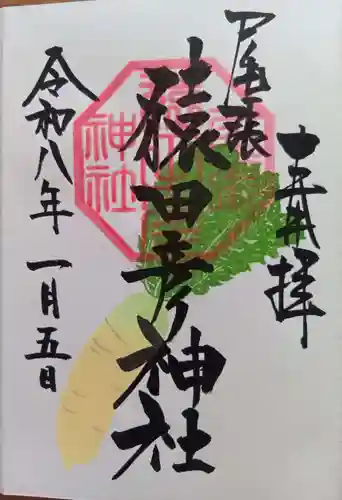 奉拝
尾張
猿田彦神社
令和八年一月五日